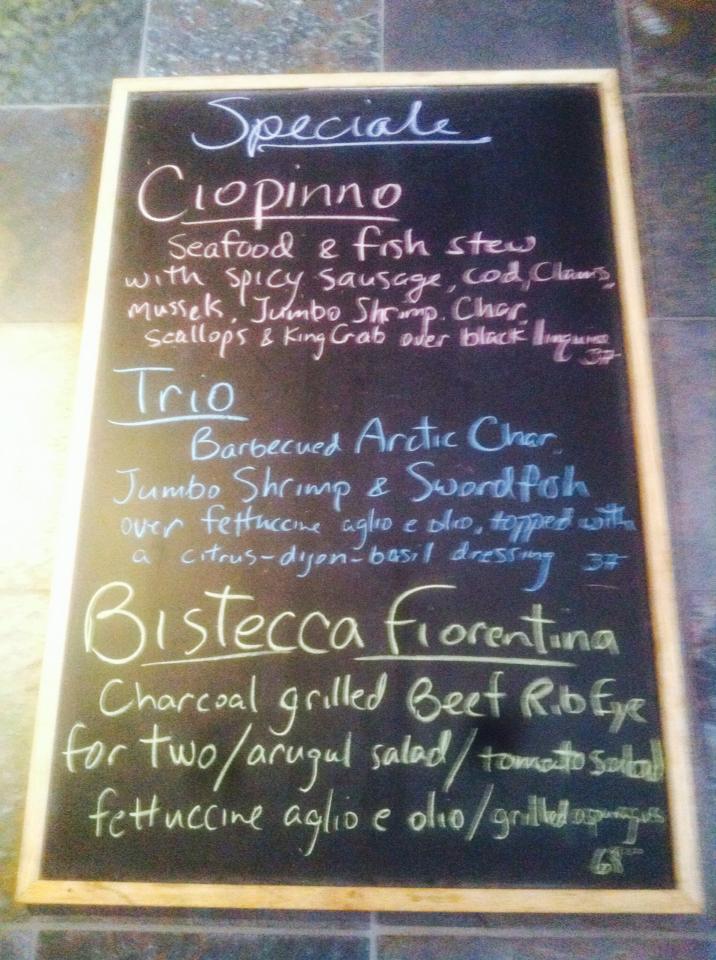 Speciale
Ciopinno
Seafood & fish stew
with spicy sausage, cod, Clams,
mussels, Jumbo Shrimp, Char,
scallops & King Crab over black linguine
37
Trio
Barbecued Arctic Char,
Jumbo Shrimp & Swordfish
over fettuccine aglio e olio, topped with
a citrus-dijon-basil dressing 37
Bistecca Fiorentina
Charcoal grilled Beef Rib Eye
for two/arugul salad/tomato salad
fettuccine aglio e olio/grilled asparagus